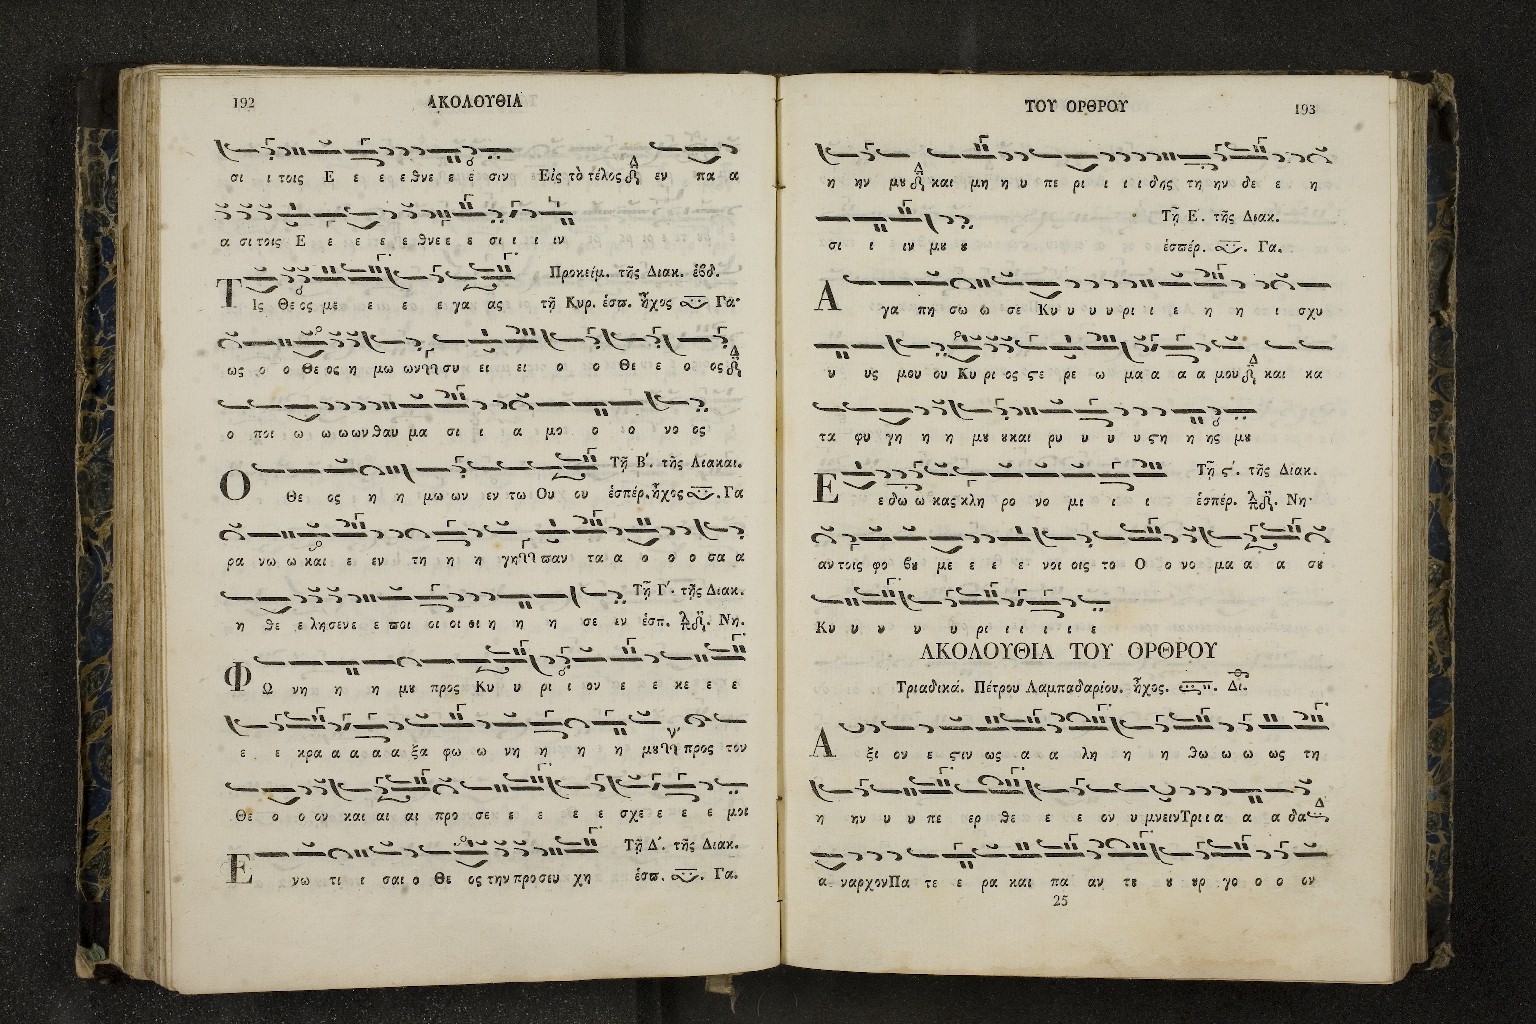 192 ΑΚΟΛΟΥΘΙΑ
σι ι τοις Ε ε ε ε θνε ε ε σιν Εἰς τὸ τέλος εν πα α
α σι τοις Ε ε ε ε ε θνε ε ε σι ι ι ιν
Προκείμ. τῆς Διακ. ἑβδ.
Τις Θε ος με ε ε ε γα ας τῇ Κυρ. ἑσπ. ἦχος Γα
ως ο ο Θε ος η μω ων συ ει ει ο ο Θε ε ο ος
ο ποι ω ω ω ων θαυ μα σι ι α μο ο ο νο ος
Τῇ Β΄. τῆς Διακαι.
Ο Θε ος η η μω ων εν τω Ου ου ἑσπέρ. ἦχος . Γα
ρα νω ω και ε εν τη η η γη παν τα α ο ο ο σα α
Τῇ Γ΄. τῆς Διακ.
η θε ε λησενε ε ποι οι οι οι η η η σε εν ἑσπ. Νη.
Φω νη η η μου προς Κυ υ ρι ι ον ε ε κε ε ε
ε ε κρα α α α α ξα φω ω νη η η η μου προς τον
Θε ο ο ον και αι αι προ σε ε ε ε ε σχε ε ε ε μοι
Τῇ Δ΄. τῆς Διακ.
Ε νω τι ι σαι ο Θε ος την προσευ χη ἑσπ. . Γα.
ΤΟΥ ΟΡΘΡΟΥ 193
η ην μου και μη η υ πε ρι ι ι ι δης τη ην δε ε η
Τῇ Ε΄. τῆς Διακ.
σι ι ιν μου ου ἑσπέρ. . Γα.
Α γα πη σω ω σε Κυ υ υ υ ρι ι ε η η ι σχυ
υ υς μου ου Κυ ρι ος ϛε ρε ω μα α α α μου και κα
τα φυ γη η η μου ουκαι ρυ υ υ υ ϛη η ης μου
Τῇ ϛ΄. τῆς Διακ.
Ε ε δω ω κας κλη ρο νο μι ι ι ἑσπέρ. Νη
αν τοις φο βου με ε ε ε νοι οις το Ο ο νο μα α α σου
Κυ υ υ υ υ ρι ι ι ι ι ε
ΑΚΟΛΟΥΘΙΑ ΤΟΥ ΟΡΘΡΟΥ
Τριαδικά. Πέτρου Λαμπαδαρίου. ἦχος. . Δι.
Α ξι ον ε ϛιν ως α α λη η η θω ω ω ως τη
η ην υ υ πε ερ θε ε ε ον υ μνεινΤρι ι α α α δα
α ναρχονΠα τε ε ρα και πα αν του ου ουρ γο ο ο ον
25